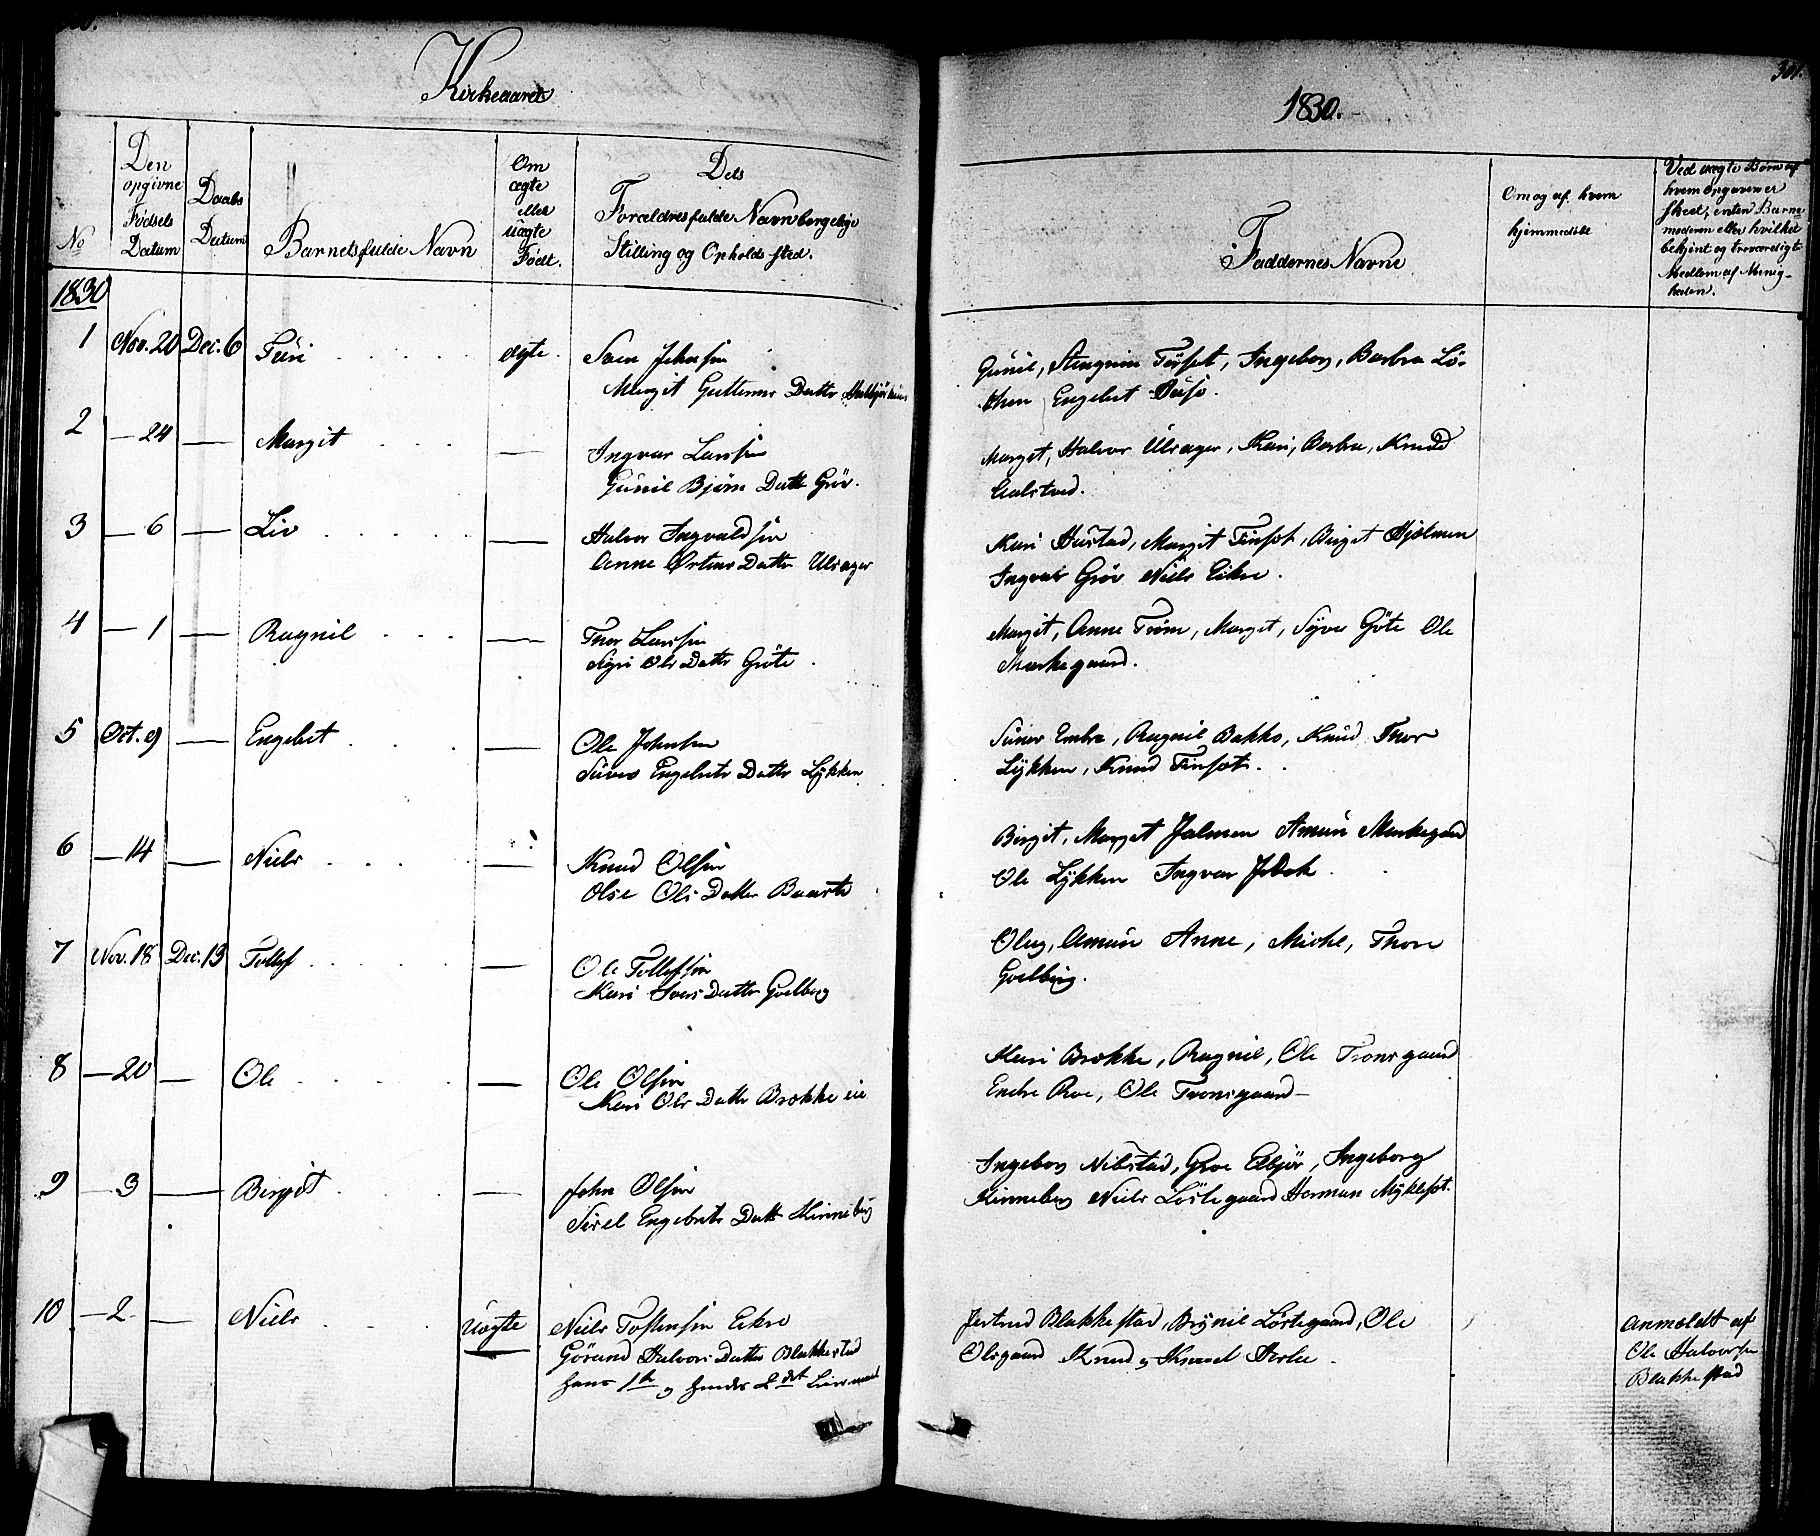 Kirkeaaret
1830.
301.
No
Den opgivne Fødsels Datum
Daabs Datum
Barnets fulde Navn
Om ægte eller uægte Født.
Dets Forældres fulde Navn borgelige Stilling og Opholds sted.
Faddernes Navne
Om og af hvem hjemmedøbt
Ved uægte Børn af hvem opgaven er skeet, enten Barne moderen eller hvilket bekjent og troværdigt Medlem af Menigheden.
1830
1 Nov. 20 Dec. 6 Turi ægte Sven Johnsen
Margit Guttorms Datter
Gunil, Stengrim Tufset, Ingebor, Barbra Lø-
then Engebret
2 — 24 — Margit — Ingvar Larssen
Gunil Bjørn Datt Grøv.
Marget, Halvor Ulsager, Kari, Barbra, Knud
Galstad.
3 — 6 — Liv — Halvor Ingvaldsen
Anne Ostens Datter Ulsager
Kari Hustad, Margit Tufset, Birget Hjelmen
Ingvar Grøv Niels Eikre.
4 — 1 — Ragnil — Thor Larssen
Sigri Ols Datter Gøte.
Margit, Anne Trøm, Marget, Syver Gøte Ole
Markegaard.
5 Oct. 9 — Engebret — Ole Johnsen
Engebrets Datter Lykken
Embre, Ragnil Bakko, Knud Thor
Lykken, Knud Tufset.
6 — 14 — Niels — Knud Olsen
Olse Ols Datter
Birgit, Marget Jalmen Amun Markegaard
Ole Lykken Ingvar
7 Nov. 18 Dec. 13 Tollef — Ole Tollefsen
Kari Svens Datter Golberg
Oleg, Amun Anne, Mickel, Thore
Golberg.
8 — 20 — Ole — Ole Olsen
Kari Ols Datter Brokke eie
Kari Brokke, Ragnil, Ole Tronsgaard
Endre Roe, Ole Tronsgaard —
9 — 3 — Bergit — John Olsen
Sirel Engebrets Datt Kinneberg
Ingebor Nibstad, Groe Elbjør, Ingeborg
Kinneberg Niels Løstegaard Herman Myklset.
10 — 2 — Niels uægte Niels Tostensen Eikre
Gørand Halvors Datter Blakkestad
hans 1ste og hendes 2det Leiermaal
Jertrud Blakkestad, Brynil Løstegaard, Ole
Olsgaard Knud og
Anmeldt af
Ole Halvorsen
Blakkestad